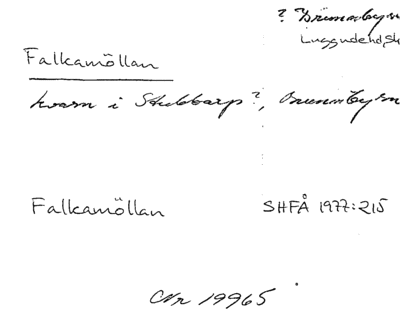 ? Brunnbysn
Luggude hd, Sk
Falkamöllan
kvarn i Stubbarp?, Brunnbysn
Falkamöllan SHFÅ 1977:215
Nr 19965